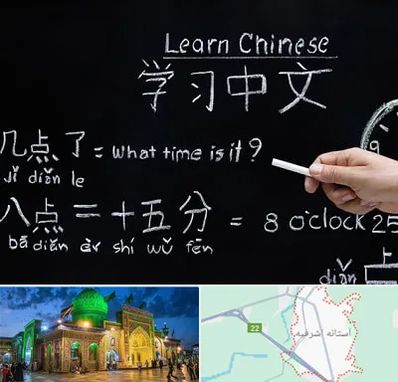 Learn Chinese
学习中文
几点了 = What time is it?
jǐ diǎn le
八点二十五分 = 8 o'clock 25
bā diǎn èr shí wǔ fēn
diǎn
上
9
22
آستانه اشرفیه